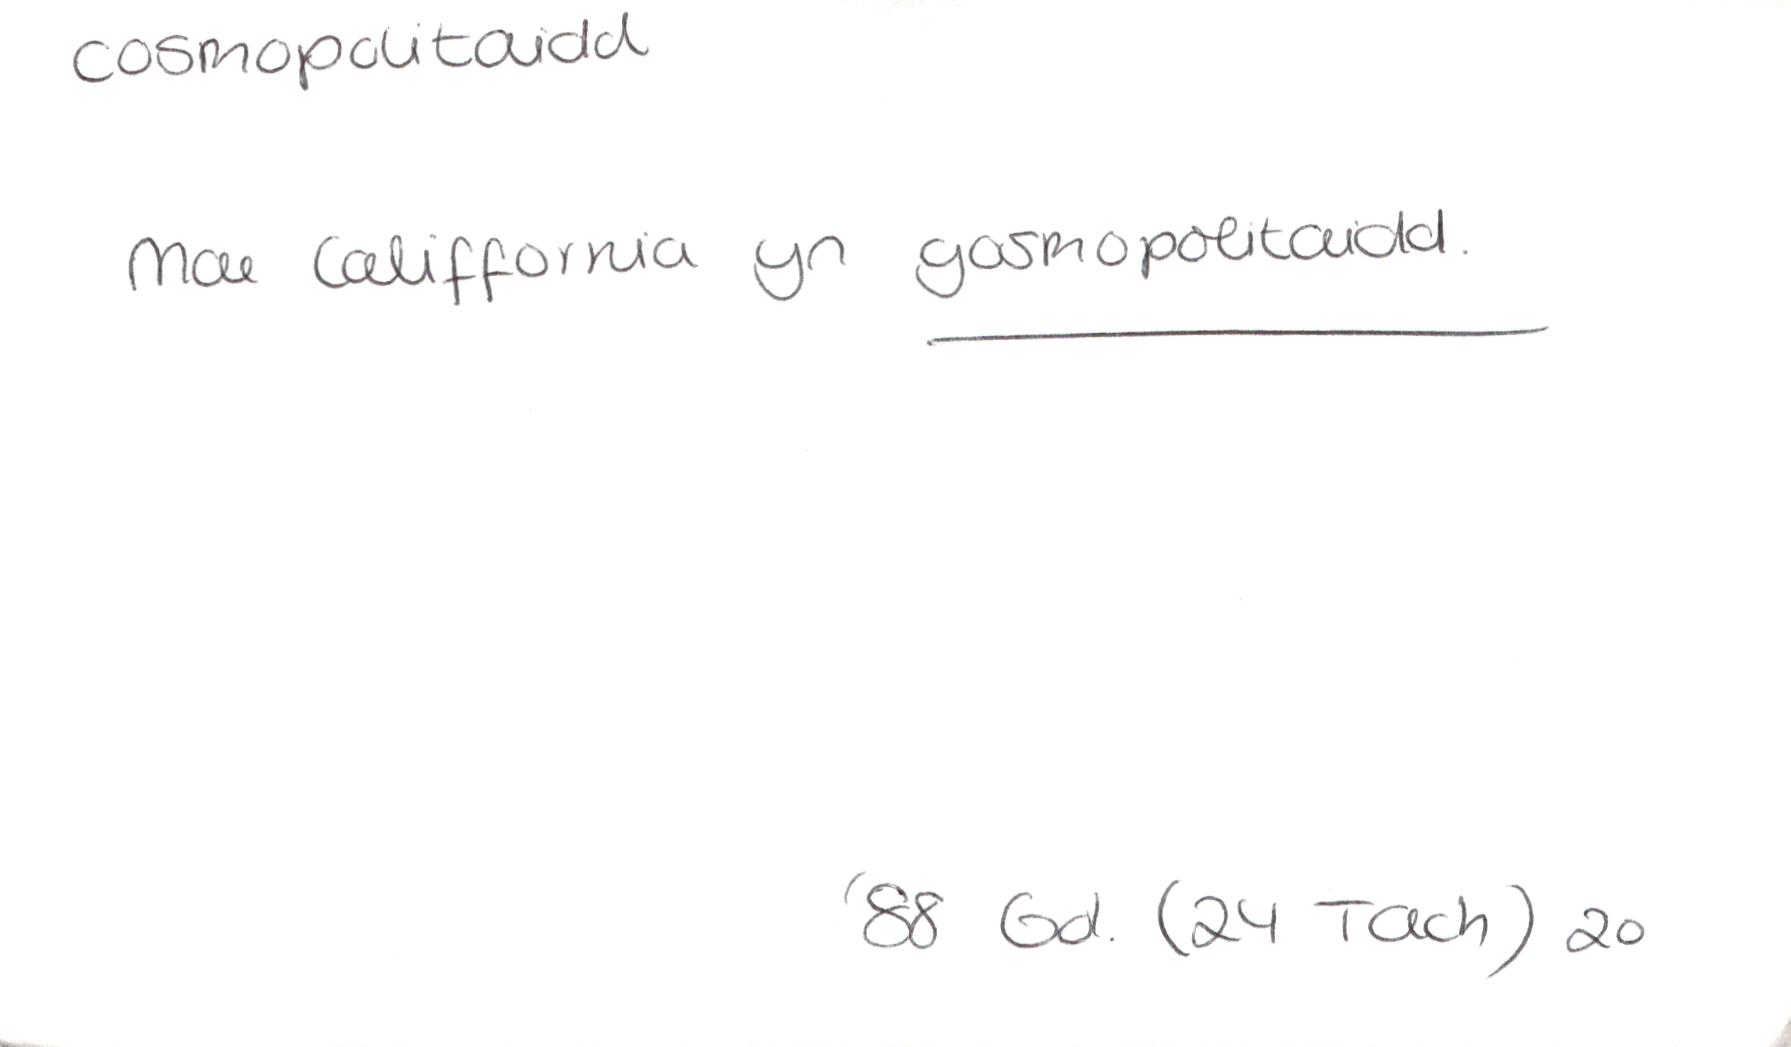 cosmopolitaidd
Mae Califfornia yn gosmopolitaidd.
'88 Gd. (24 Tach) 20